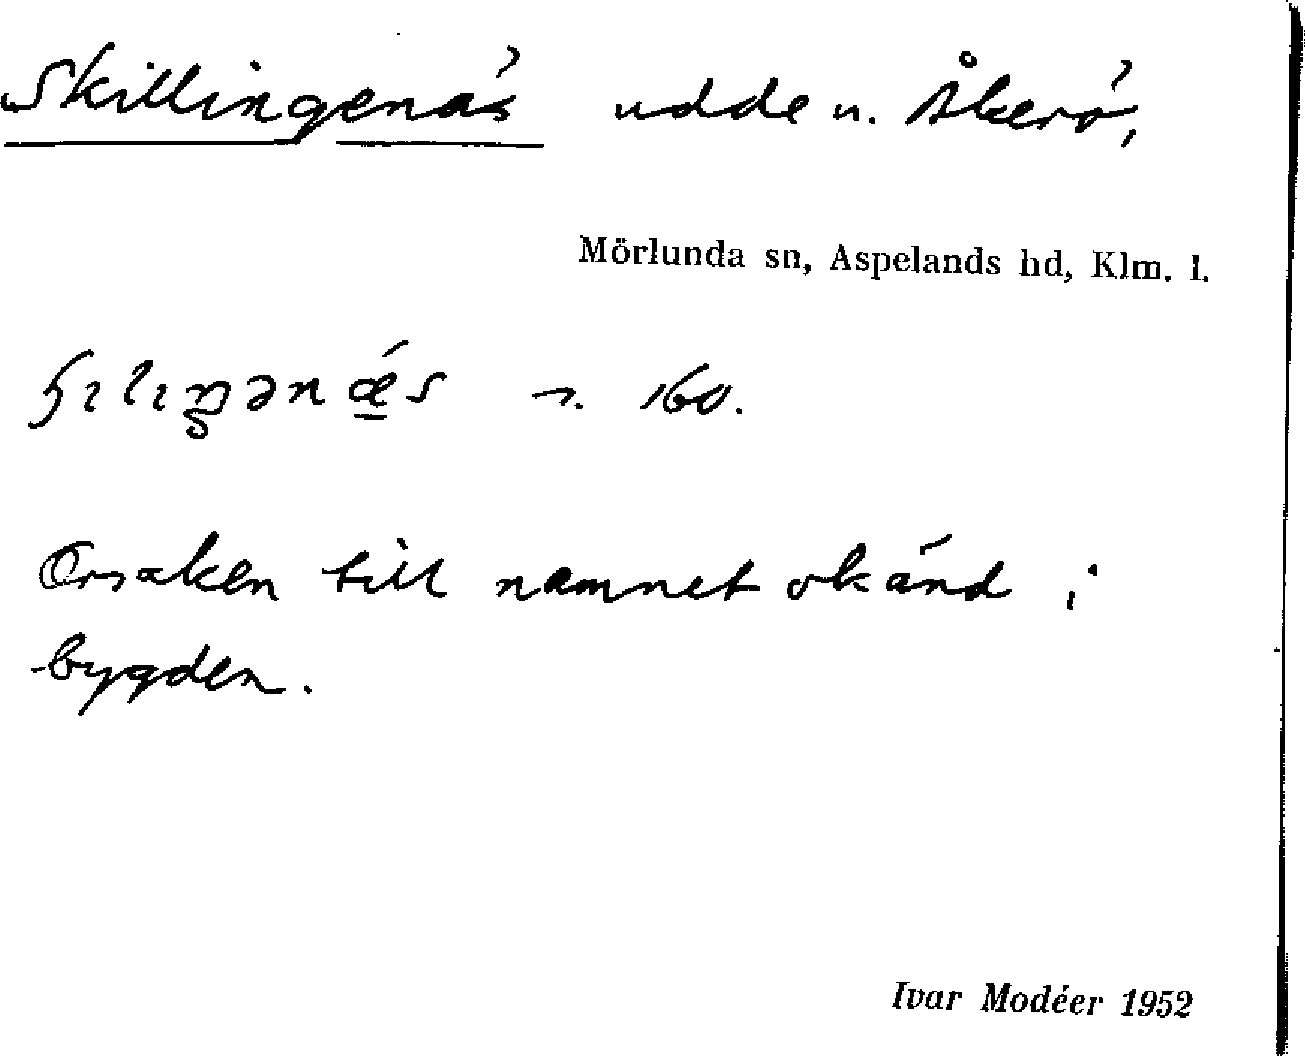 Skillingenäs udde n. Åkerö,
Mörlunda sn, Aspelands hd, Klm. l.
160.
Orsaken till namnet okänd i
bygden.
Ivar Modéer 1952